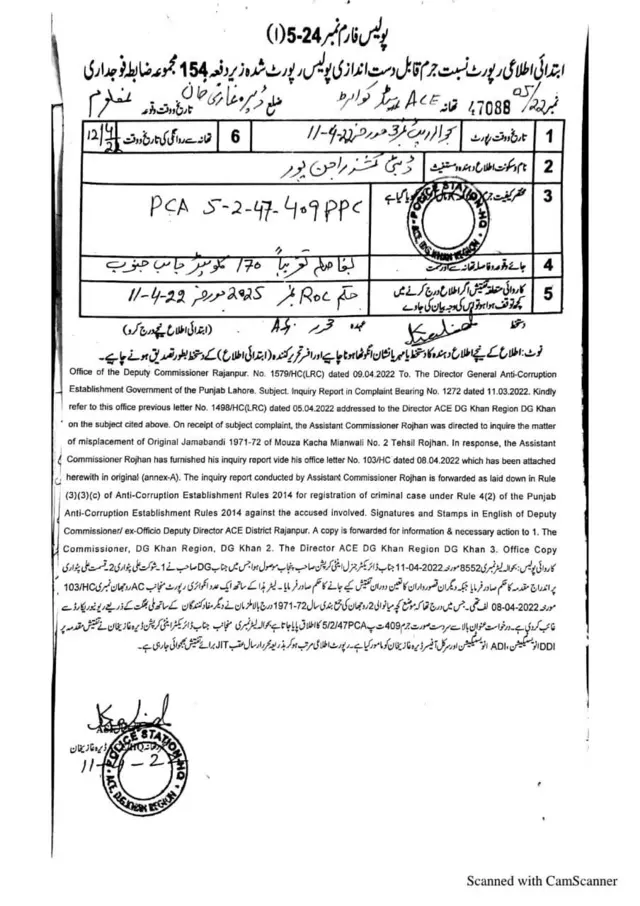 پولیس فارم نمبر 24-5(I)
ابتدائی اطلاعی رپورٹ نسبت جرم قابل دست اندازی پولیس رپورٹ شدہ زیر دفعہ 154 مجموعہ ضابطہ فوجداری
نمبر 05/22 47088 تھانہ ACE ہیڈ کوارٹر ضلع ڈیرہ غازی خان تاریخ وقت وقوعہ
1 تاریخ وقت رپورٹ 11-4-22 6 تھانہ سے روانگی کی تاریخ و وقت 12/4/22
2 نام و سکونت اطلاع دہندہ مستغیث ڈپٹی کمشنر راجن پور
3 مختصر کیفیت جرم PCA 5-2-47-409 PPC
POLICE STATION-HQ
ACE, D.G.KHAN REGION
4 جائے وقوعہ فاصلہ تھانہ سے اور سمت بفاصلہ تقریباً 170 کلومیٹر جانب جنوب
5 کاروائی متعلقہ تفتیش اگر اطلاع درج کرنے میں
کچھ توقف ہوا ہو تو اس کی وجہ بیان کی جاوے حکم ROC نمبر 2025 مورخہ 11-4-22
دستخط عہدہ محرر (ابتدائی اطلاع نیچے درج کرو)
نوٹ: اطلاع کے نیچے اطلاع دہندہ کا دستخط یا مہر یا نشان انگوٹھا ہونا چاہیے اور افسر تحریر کنندہ (ابتدائی اطلاع) کے دستخط بطور تصدیق ہونے چاہیے۔
Office of the Deputy Commissioner Rajanpur. No. 1579/HC(LRC) dated 09.04.2022 To. The Director General Anti-Corruption
Establishment Government of the Punjab Lahore. Subject. Inquiry Report in Complaint Bearing No. 1272 dated 11.03.2022. Kindly
refer to this office previous letter No. 1498/HC(LRC) dated 05.04.2022 addressed to the Director ACE DG Khan Region DG Khan
on the subject cited above. On receipt of subject complaint, the Assistant Commissioner Rojhan was directed to inquire the matter
of misplacement of Original Jamabandi 1971-72 of Mouza Kacha Mianwali No. 2 Tehsil Rojhan. In response, the Assistant
Commissioner Rojhan has furnished his inquiry report vide his office letter No. 103/HC dated 08.04.2022 which has been attached
herewith in original (annex-A). The inquiry report conducted by Assistant Commissioner Rojhan is forwarded as laid down in Rule
(3)(3)(c) of Anti-Corruption Establishment Rules 2014 for registration of criminal case under Rule 4(2) of the Punjab
Anti-Corruption Establishment Rules 2014 against the accused involved. Signatures and Stamps in English of Deputy
Commissioner/ ex-Officio Deputy Director ACE District Rajanpur. A copy is forwarded for information & necessary action to 1. The
Commissioner, DG Khan Region, DG Khan 2. The Director ACE DG Khan Region DG Khan 3. Office Copy
کاروائی پولیس: بحوالہ لیٹر نمبری 8552 مورخہ 11-04-2022 جناب ڈائریکٹر جنرل اینٹی کرپشن صاحب پنجاب موصول ہوا جس میں جناب DG صاحب نے 1۔ شوکت علی پٹواری 2۔ قسمت علی پٹواری
پر اندراج مقدمہ کا حکم صادر فرمایا جبکہ دیگران قصور واران کا تعین دوران تفتیش کیے جانے کا حکم صادر فرمایا۔ لیٹر ہذا کے ساتھ ایک عدد انکوائری رپورٹ منجانب AC روجھان نمبری 103/HC
مورخہ 08-04-2022 لف تھی۔ جس میں درج تھا کہ موضع کچہ میانوالی 2 روجھان کی جمع بندی سال 1971-72 درج بالا ملزمان نے دیگر مفاد کنندگان کے ساتھ ملی بھگت کے ذریعے ریونیو ریکارڈ سے
غائب کر دی ہے۔ درخواست عنوان بالا سے سر دست صورت جرم 409 ت پ 5/2/47PCA کا اطلاق پایا جاتا ہے بحوالہ لیٹر نمبری منجانب جناب ڈائریکٹر اینٹی کرپشن ڈیرہ غازیخان نے تفتیش مقدمہ پر
DDI انوسٹیگیشن، ADI انوسٹیگیشن اور سرکل آفیسر ڈیرہ غازیخان کو مامور کیا ہے۔ رپورٹ اطلاعی مرتب ہو کر بذریعہ محرر ارسال عقب JIT برائے تفتیش بھجوائی جا رہی ہے۔
ڈیرہ غازیخان
11-4-22
POLICE STATION-HQ
ACE, D.G.KHAN REGION
Scanned with CamScanner